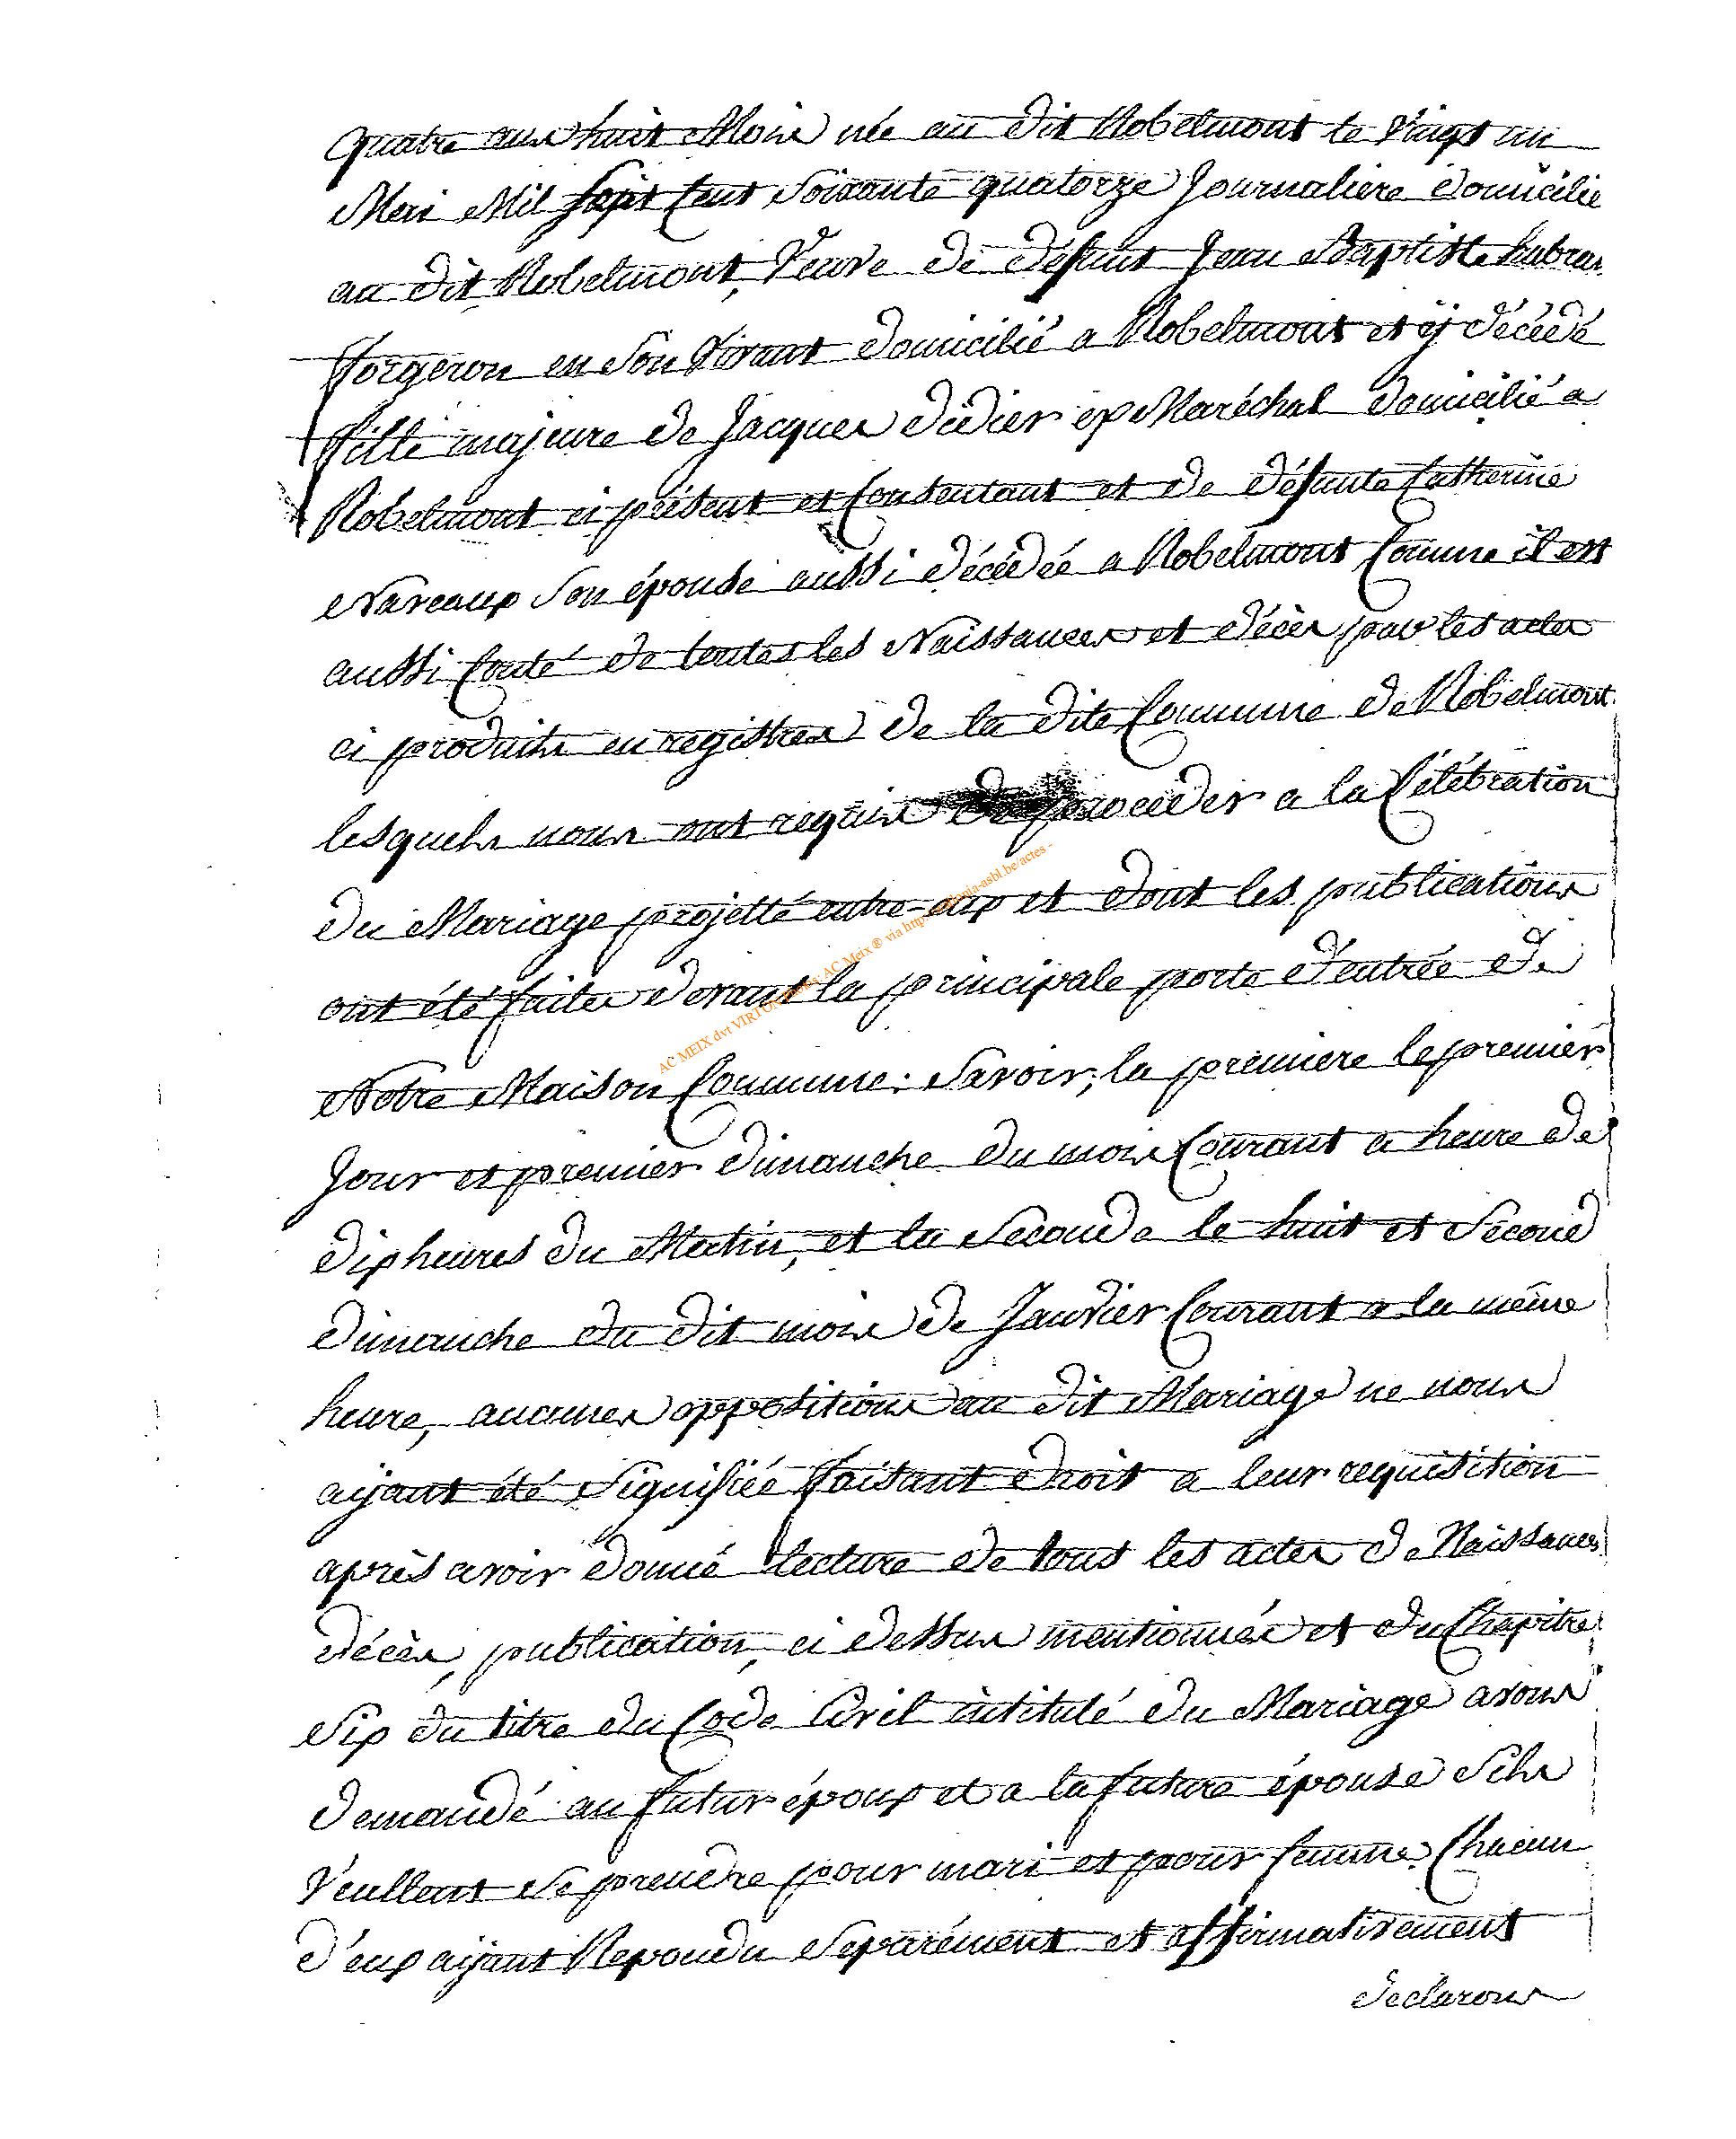 quatre ans huit Mois née au dit Robelmont le Vingt un
Mai Mil Sept Cent Soixante quatorze Journaliere domicilie
au dit Robelmont, Veuve de défunt Jean Baptiste habran
Forgeron en Son Vivant domicilié a Robelmont et ÿ décédé
Fille majeure de Jacques didier ex Maréchal domicilié a
Robelmont ci présent et Consentant et de défunte Catherine
Naveaux Son épouse aussi décédée a Robelmont Comme il est
aussi Conté de toutes les Naissances et décès par les actes
ci produits en registres de la dite Commune de Robelmont
lesquels nous ont requis de proceder a la Célébration
du Mariage projetté entre-eux et dont les publications
ont été faites devant la principale porte d'entrée de
Notre Maison Commune: Savoir, la premiere le premier
Jour et premier dimanche du mois Courant a heure de
dix heures du Matin, et la Seconde le huit et Second
dimanche du dit mois de Janvier Courant a la même
heure, aucunes oppositions au dit Mariage ne nous
aÿant été Signifiée Faisant droit a leur requisition
après avoir donné lecture de tous les actes de Naissances
décès, publication, ci dessus mentionnés et du Chapitre
Six du titre du Code Civil intitulé du Mariage avons
demandé au futur époux et a la future épouse S'ils
Veullent se prendre pour mari et pour femme Chacun
d'eux aÿant Repondu Séparément et affirmativement
declarons
AC MEIX dvt VIRTON AC Meix ® via -asbl.be/actes -